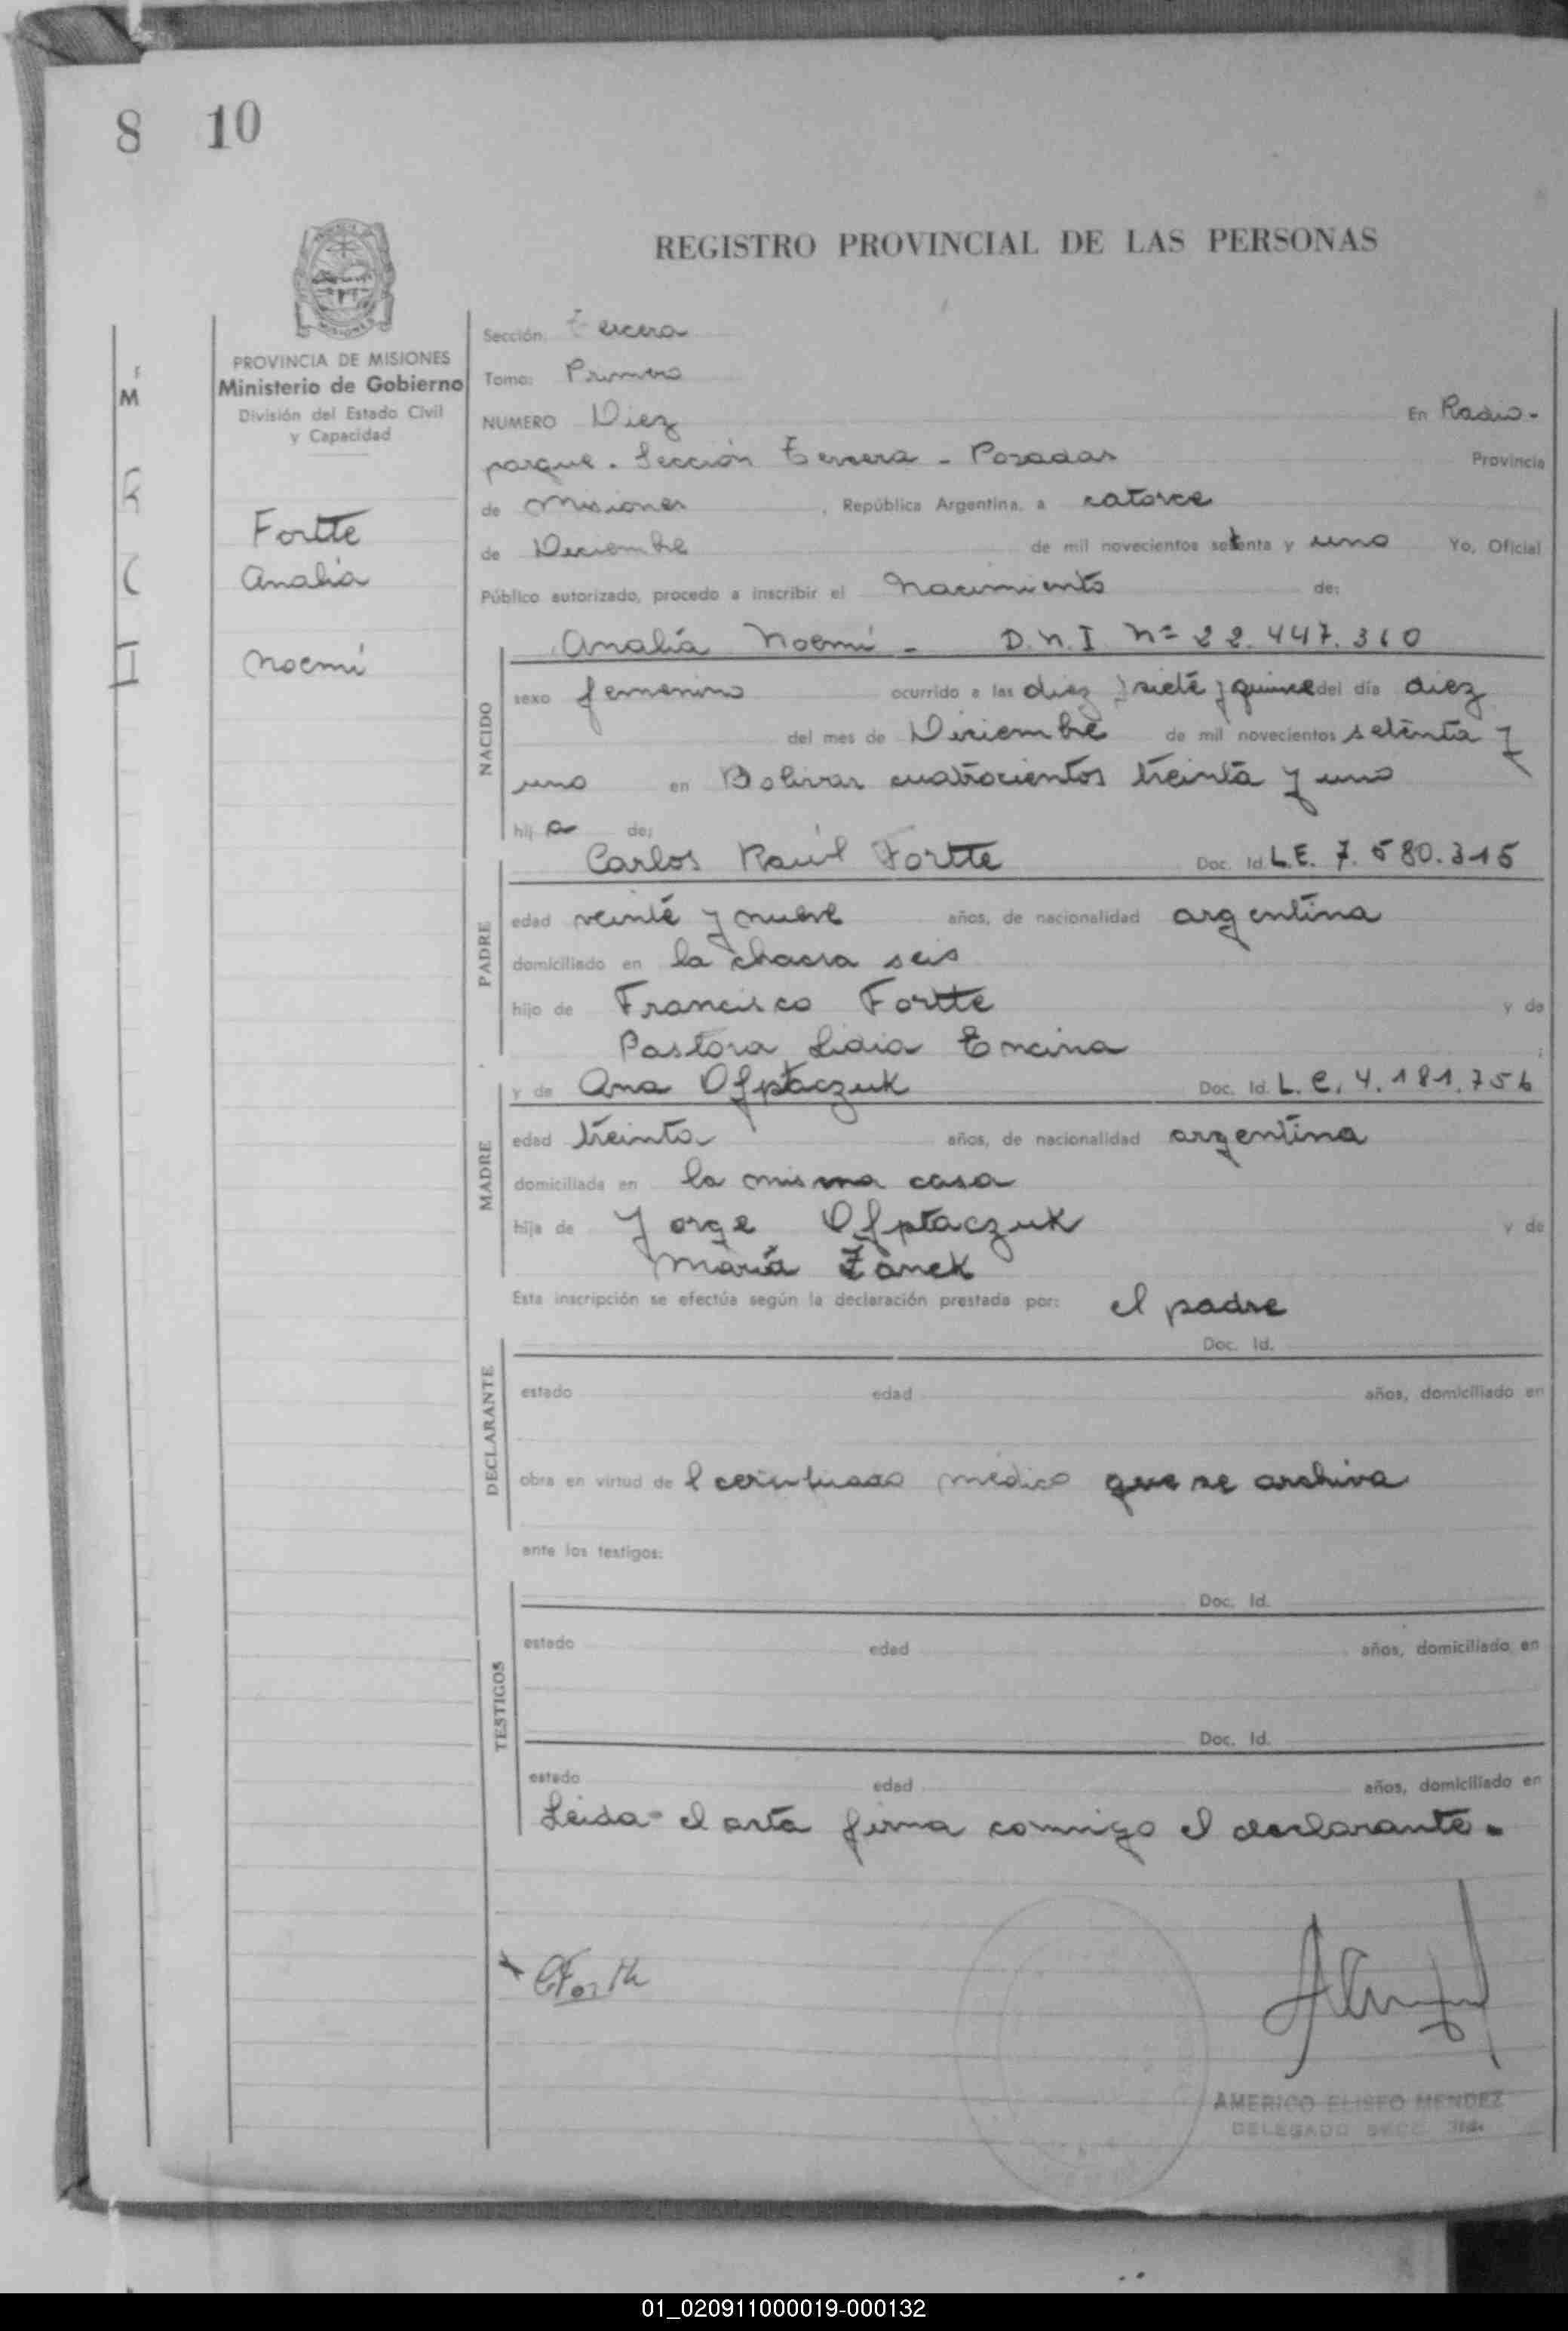 8 10
REGISTRO PROVINCIAL DE LAS PERSONAS
MISIONES
PROVINCIA DE MISIONES
Ministerio de Gobierno
División del Estado Civil
y Capacidad
M
Fortte
Analía
Noemí
Sección: Tercera
Tomo: Primero
NUMERO Diez En Radio-
parque. Sección Tercera - Posadas Provincia
de Misiones, República Argentina, a catorce
de Diciembre de mil novecientos setenta y uno Yo, Oficial
Público autorizado, procedo a inscribir el Nacimiento de:
NACIDO
Analía Noemí - D.N.I. Nº 22.447.310
sexo femenino ocurrido a las diez y siete y quince del día diez
del mes de Diciembre de mil novecientos setenta y
uno en Bolivar cuatrocientos treinta y uno
hija de:
PADRE
Carlos Raúl Fortte Doc. Id. L.E. 7.580.315
edad veinte y nueve años, de nacionalidad argentina
domiciliado en la chacra seis
hijo de Francisco Fortte y de
Pastora Lidia Encina
MADRE
y de Ana Ofptaczuk Doc. Id. L.C. 4.181.756
edad treinta años, de nacionalidad argentina
domiciliada en la misma casa
hija de Jorge Ofptaczuk y de
María Zanek
Esta inscripción se efectúa según la declaración prestada por: el padre
DECLARANTE
Doc. Id.
estado edad años, domiciliado en
obra en virtud de l certificado médico que se archiva
ante los testigos:
TESTIGOS
Doc. Id.
estado edad años, domiciliado en
Doc. Id.
estado edad años, domiciliado en
Leida el acta firma conmigo el declarante.
AMERICO ELISEO MENDEZ
DELEGADO SECC. 3ra.
01_020911000019-000132